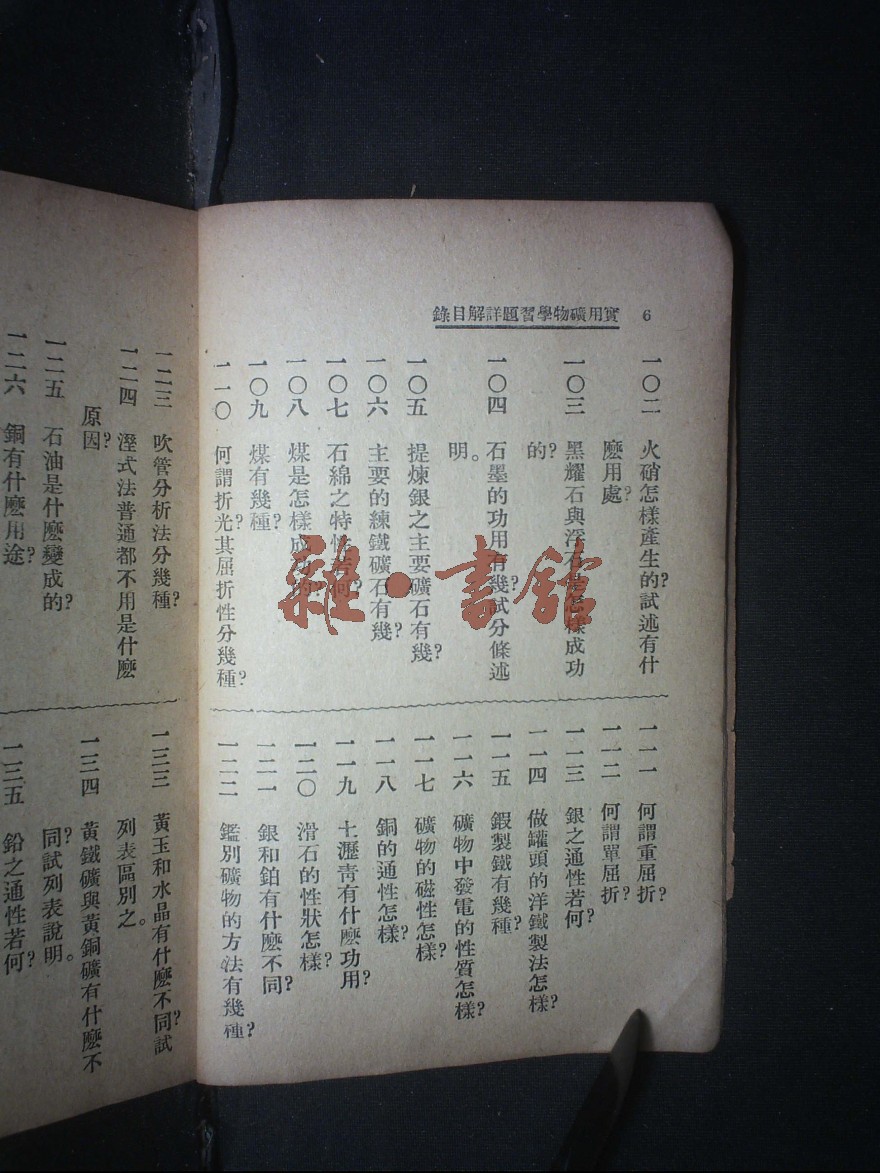 實用礦物學習題詳解目錄 6
一〇二 火硝怎樣產生的?試述有什
麼用處?
一〇三 黑耀石與浮石是怎樣成功
的?
一〇四 石墨的功用有幾?試分條述
明。
一〇五 提煉銀之主要礦石有幾?
一〇六 主要的練鐵礦石有幾?
一〇七 石綿之特性若何?
一〇八 煤是怎樣成功的?
一〇九 煤有幾種?
一一〇 何謂折光?其屈折性分幾種?
一一一 何謂重屈折?
一一二 何謂單屈折?
一一三 銀之通性若何?
一一四 做罐頭的洋鐵製法怎樣?
一一五 鍜製鐵有幾種?
一一六 礦物中發電的性質怎樣?
一一七 礦物的磁性怎樣?
一一八 銅的通性怎樣?
一一九 土瀝青有什麼功用?
一二〇 滑石的性狀怎樣?
一二一 銀和鉑有什麼不同?
一二二 鑑別礦物的方法有幾種?
一二三 吹管分析法分幾種?
一二四 溼式法普通都不用是什麼
原因?
一二五 石油是什麼變成的?
一二六 銅有什麼用途?
一三三 黃玉和水晶有什麼不同?試
列表區別之。
一三四 黃鐵礦與黃銅礦有什麼不
同?試列表說明。
一三五 鉛之通性若何?
雜·書館